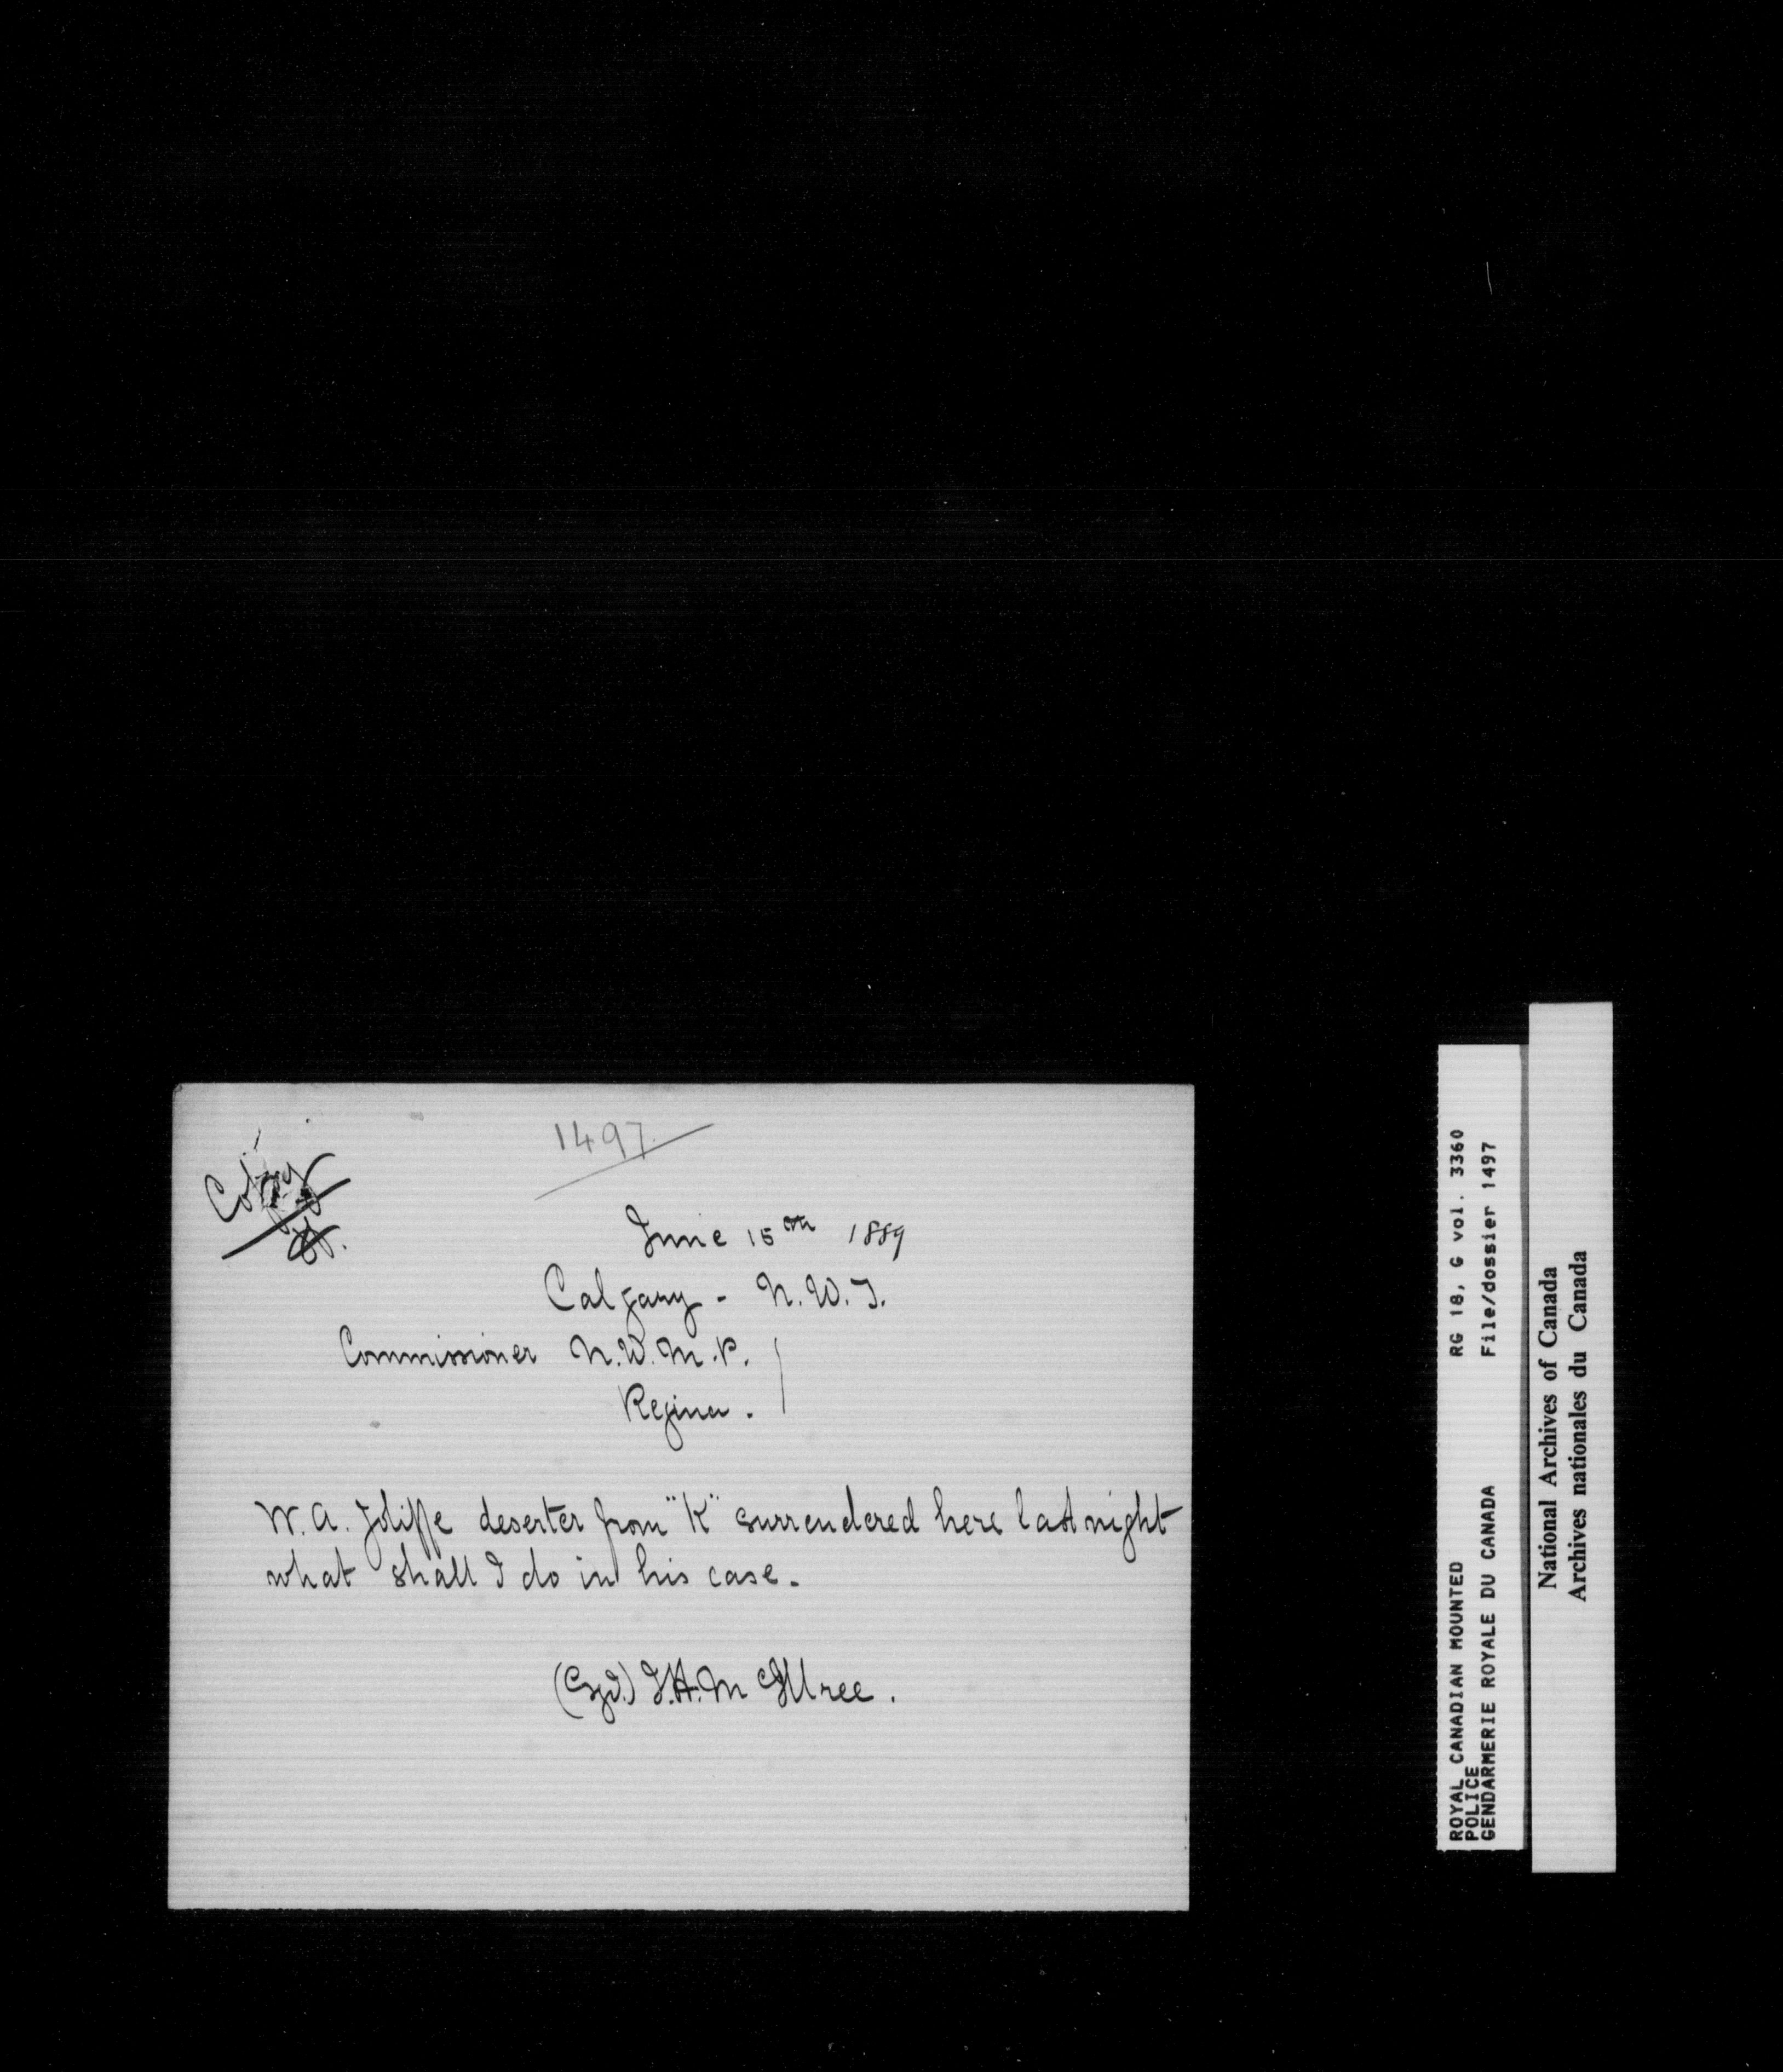 1497
Copy
June 15th 1889
Calgary - N.W.T.
Commissioner N.W.M.P.
Regina.
W.A. Joliffe deserter from "K" surrendered here last night
what shall I do in his case.
(Sgd.) J.H. McIllree.
ROYAL CANADIAN MOUNTED RG 18, G vol. 3360
POLICE
GENDARMERIE ROYALE DU CANADA File/dossier 1497
National Archives of Canada
Archives nationales du Canada